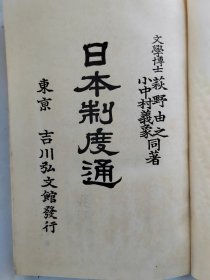 文學博士 萩野由之
小中村義象 同著
日本制度通
東京 吉川弘文館發行